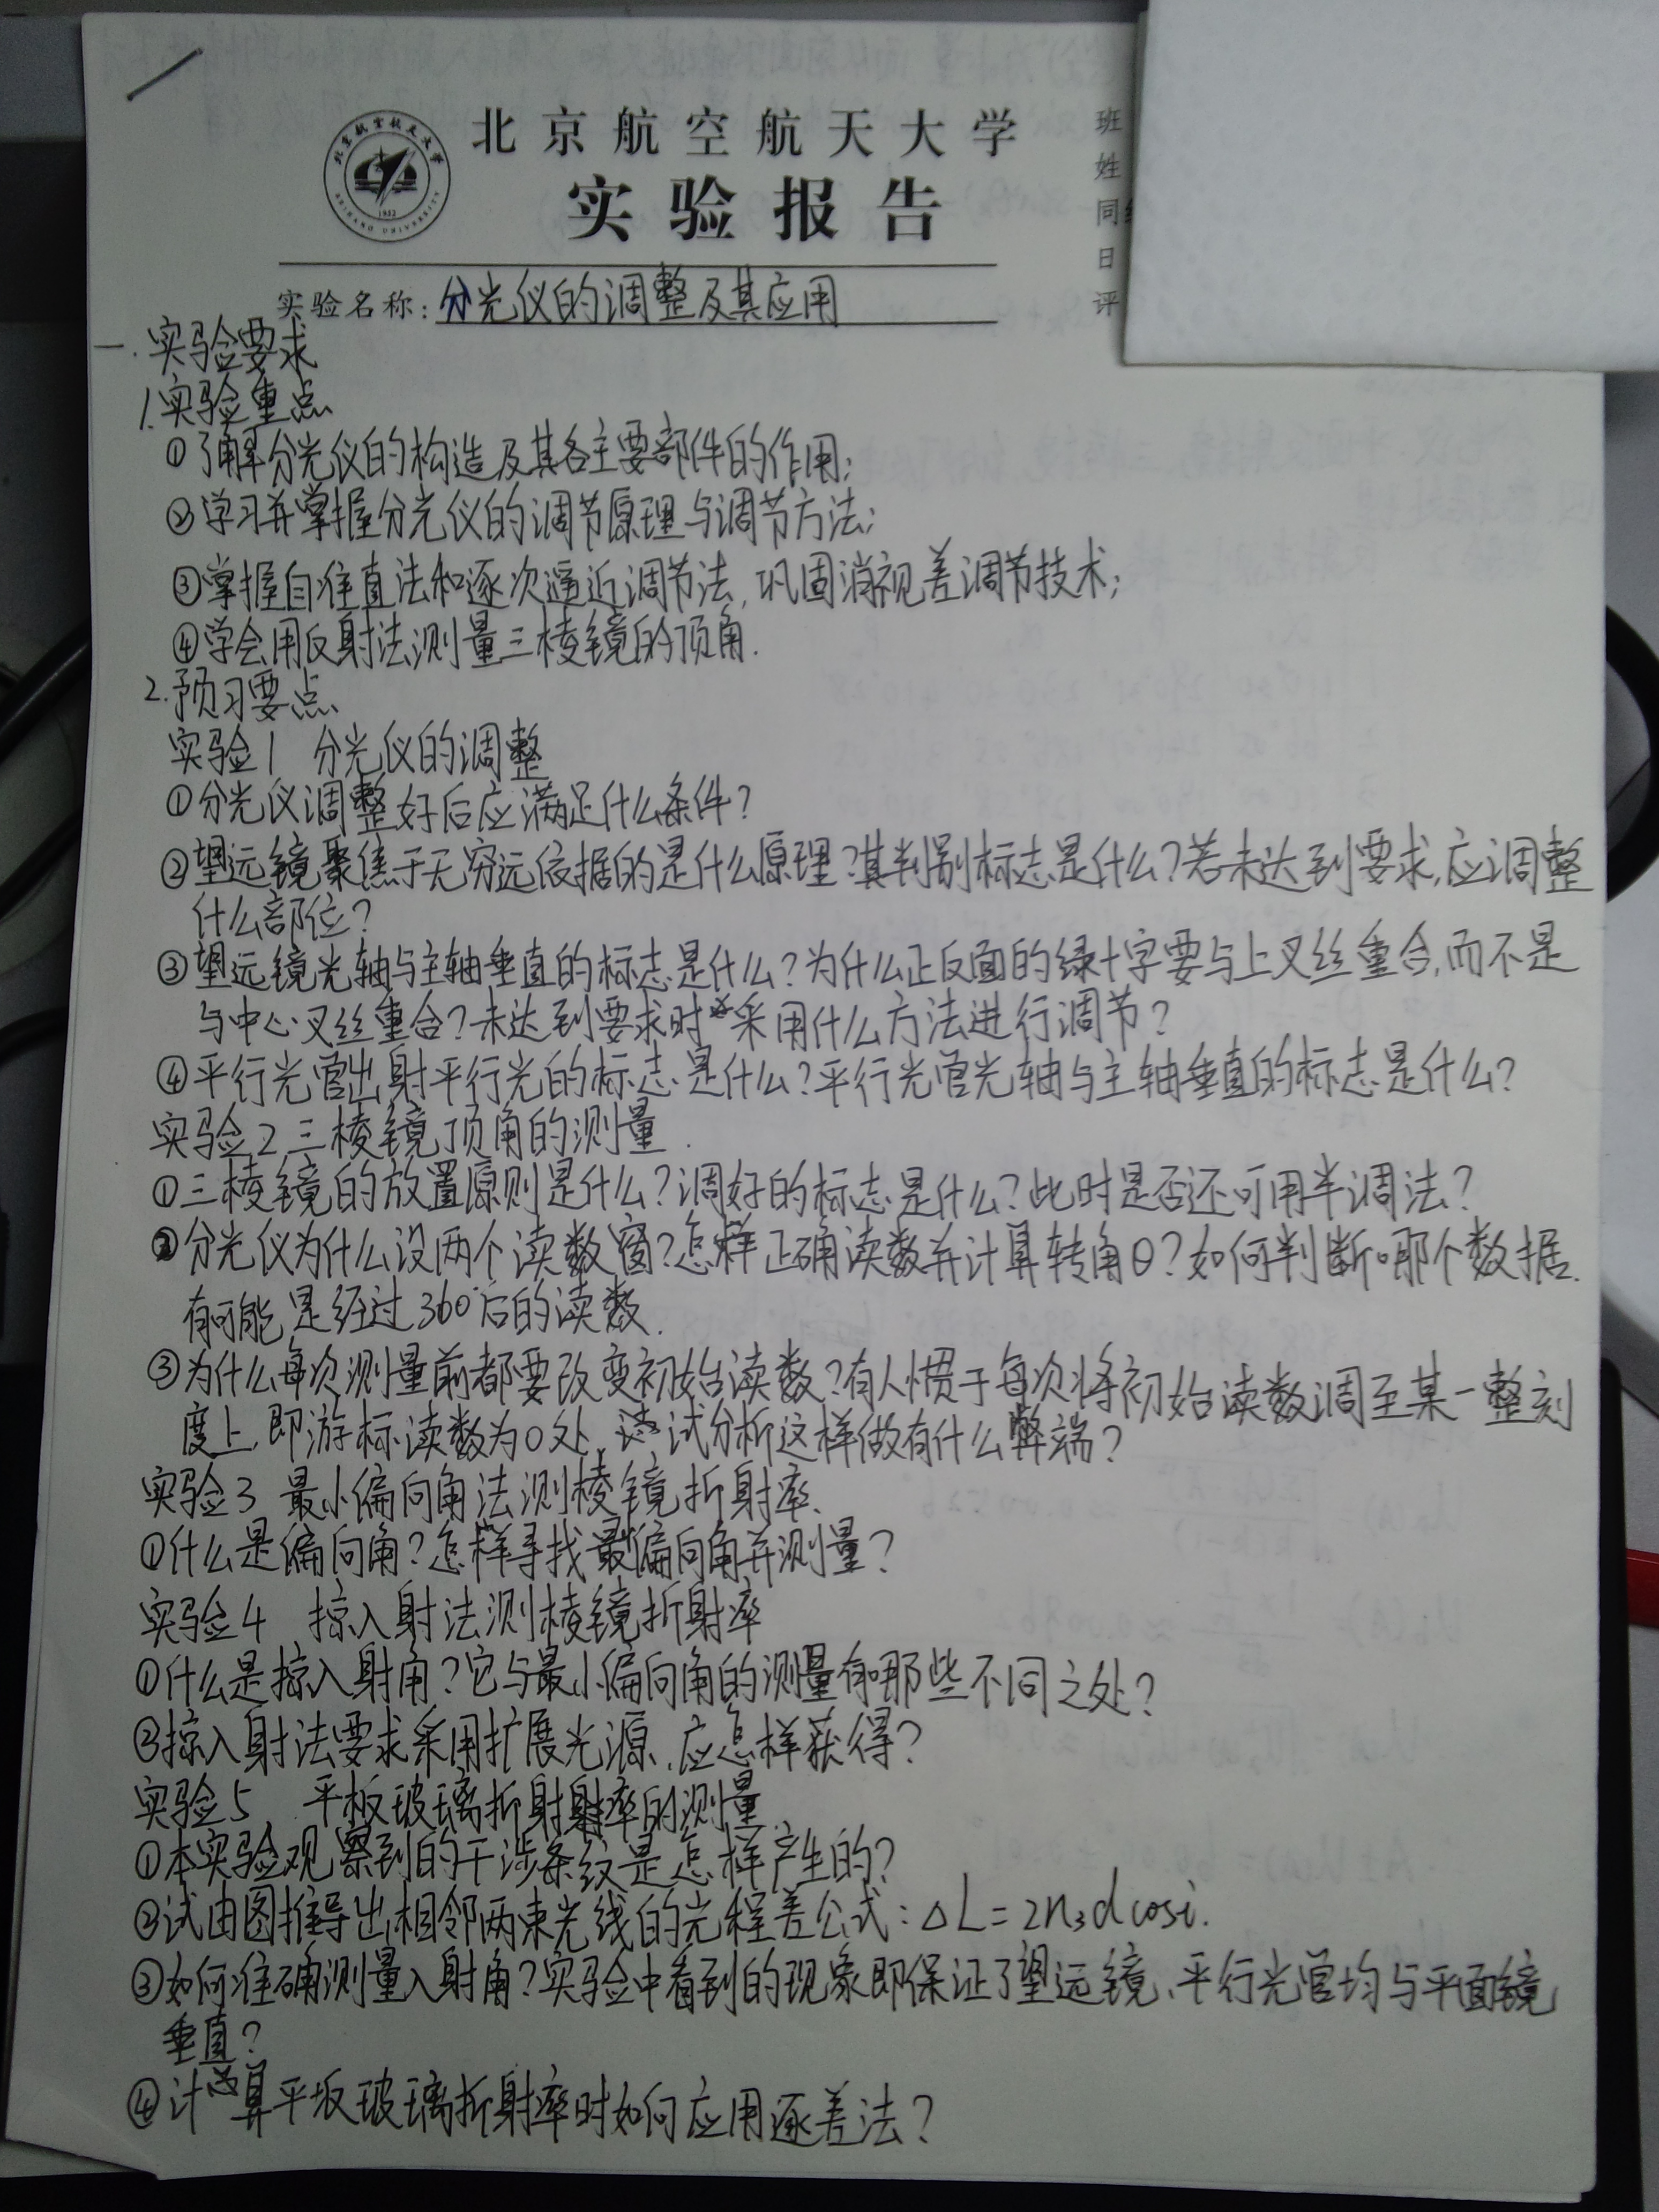 北京航空航天大学
实验报告
北京航空航天大学
1952
BEIHANG UNIVERSITY
班
姓
同
日
评
实验名称：分光仪的调整及其应用
一.实验要求
1.实验重点
①了解分光仪的构造及其各主要部件的作用；
②学习并掌握分光仪的调节原理与调节方法；
③掌握自准直法和逐次逼近调节法，巩固消视差调节技术；
④学会用反射法测量三棱镜的顶角.
2.预习要点
实验1 分光仪的调整
①分光仪调整好后应满足什么条件？
②望远镜聚焦于无穷远依据的是什么原理？其判别标志是什么？若未达到要求，应调整
什么部位？
③望远镜光轴与主轴垂直的标志是什么？为什么正反面的绿十字要与上叉丝重合，而不是
与中心叉丝重合？未达到要求时采用什么方法进行调节？
④平行光管出射平行光的标志是什么？平行光管光轴与主轴垂直的标志是什么？
实验2 三棱镜顶角的测量.
①三棱镜的放置原则是什么？调好的标志是什么？此时是否还可用半调法？
②分光仪为什么设两个读数窗？怎样正确读数并计算转角θ？如何判断哪个数据
有可能是经过360°后的读数.
③为什么每次测量前都要改变初始读数？有人惯于每次将初始读数调至某一整刻
度上，即游标读数为0处，试分析这样做有什么弊端？
实验3 最小偏向角法测棱镜折射率.
①什么是偏向角？怎样寻找最小偏向角并测量？
实验4 掠入射法测棱镜折射率
①什么是掠入射角？它与最小偏向角的测量有哪些不同之处？
②掠入射法要求采用扩展光源，应怎样获得？
实验5 平板玻璃折射射率的测量
①本实验观察到的干涉条纹是怎样产生的？
②试由图推导出相邻两束光线的光程差公式：ΔL=2n₃dcosi.
③如何准确测量入射角？实验中看到的现象即保证了望远镜、平行光管均与平面镜
垂直？
④计算平板玻璃折射率时如何应用逐差法？